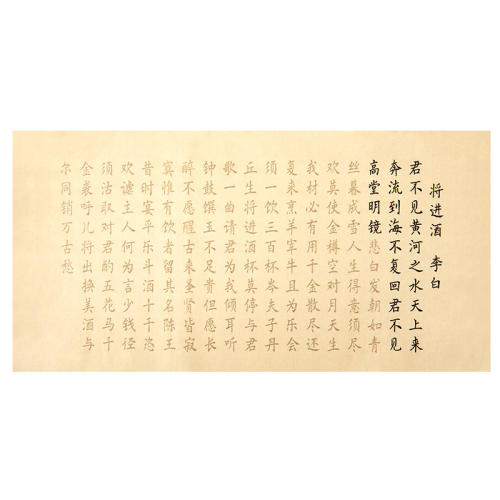 将进酒 李白
君不见黄河之水天上来
奔流到海不复回君不见
高堂明镜悲白发朝如青
丝暮成雪人生得意须尽
欢莫使金樽空对月天生
我材必有用千金散尽还
复来烹羊宰牛且为乐会
须一饮三百杯岑夫子丹
丘生将进酒杯莫停与君
歌一曲请君为我倾耳听
钟鼓馔玉不足贵但愿长
醉不愿醒古来圣贤皆寂
寞惟有饮者留其名陈王
昔时宴平乐斗酒十千恣
欢谑主人何为言少钱径
须沽取对君酌五花马千
金裘呼儿将出换美酒与
尔同销万古愁